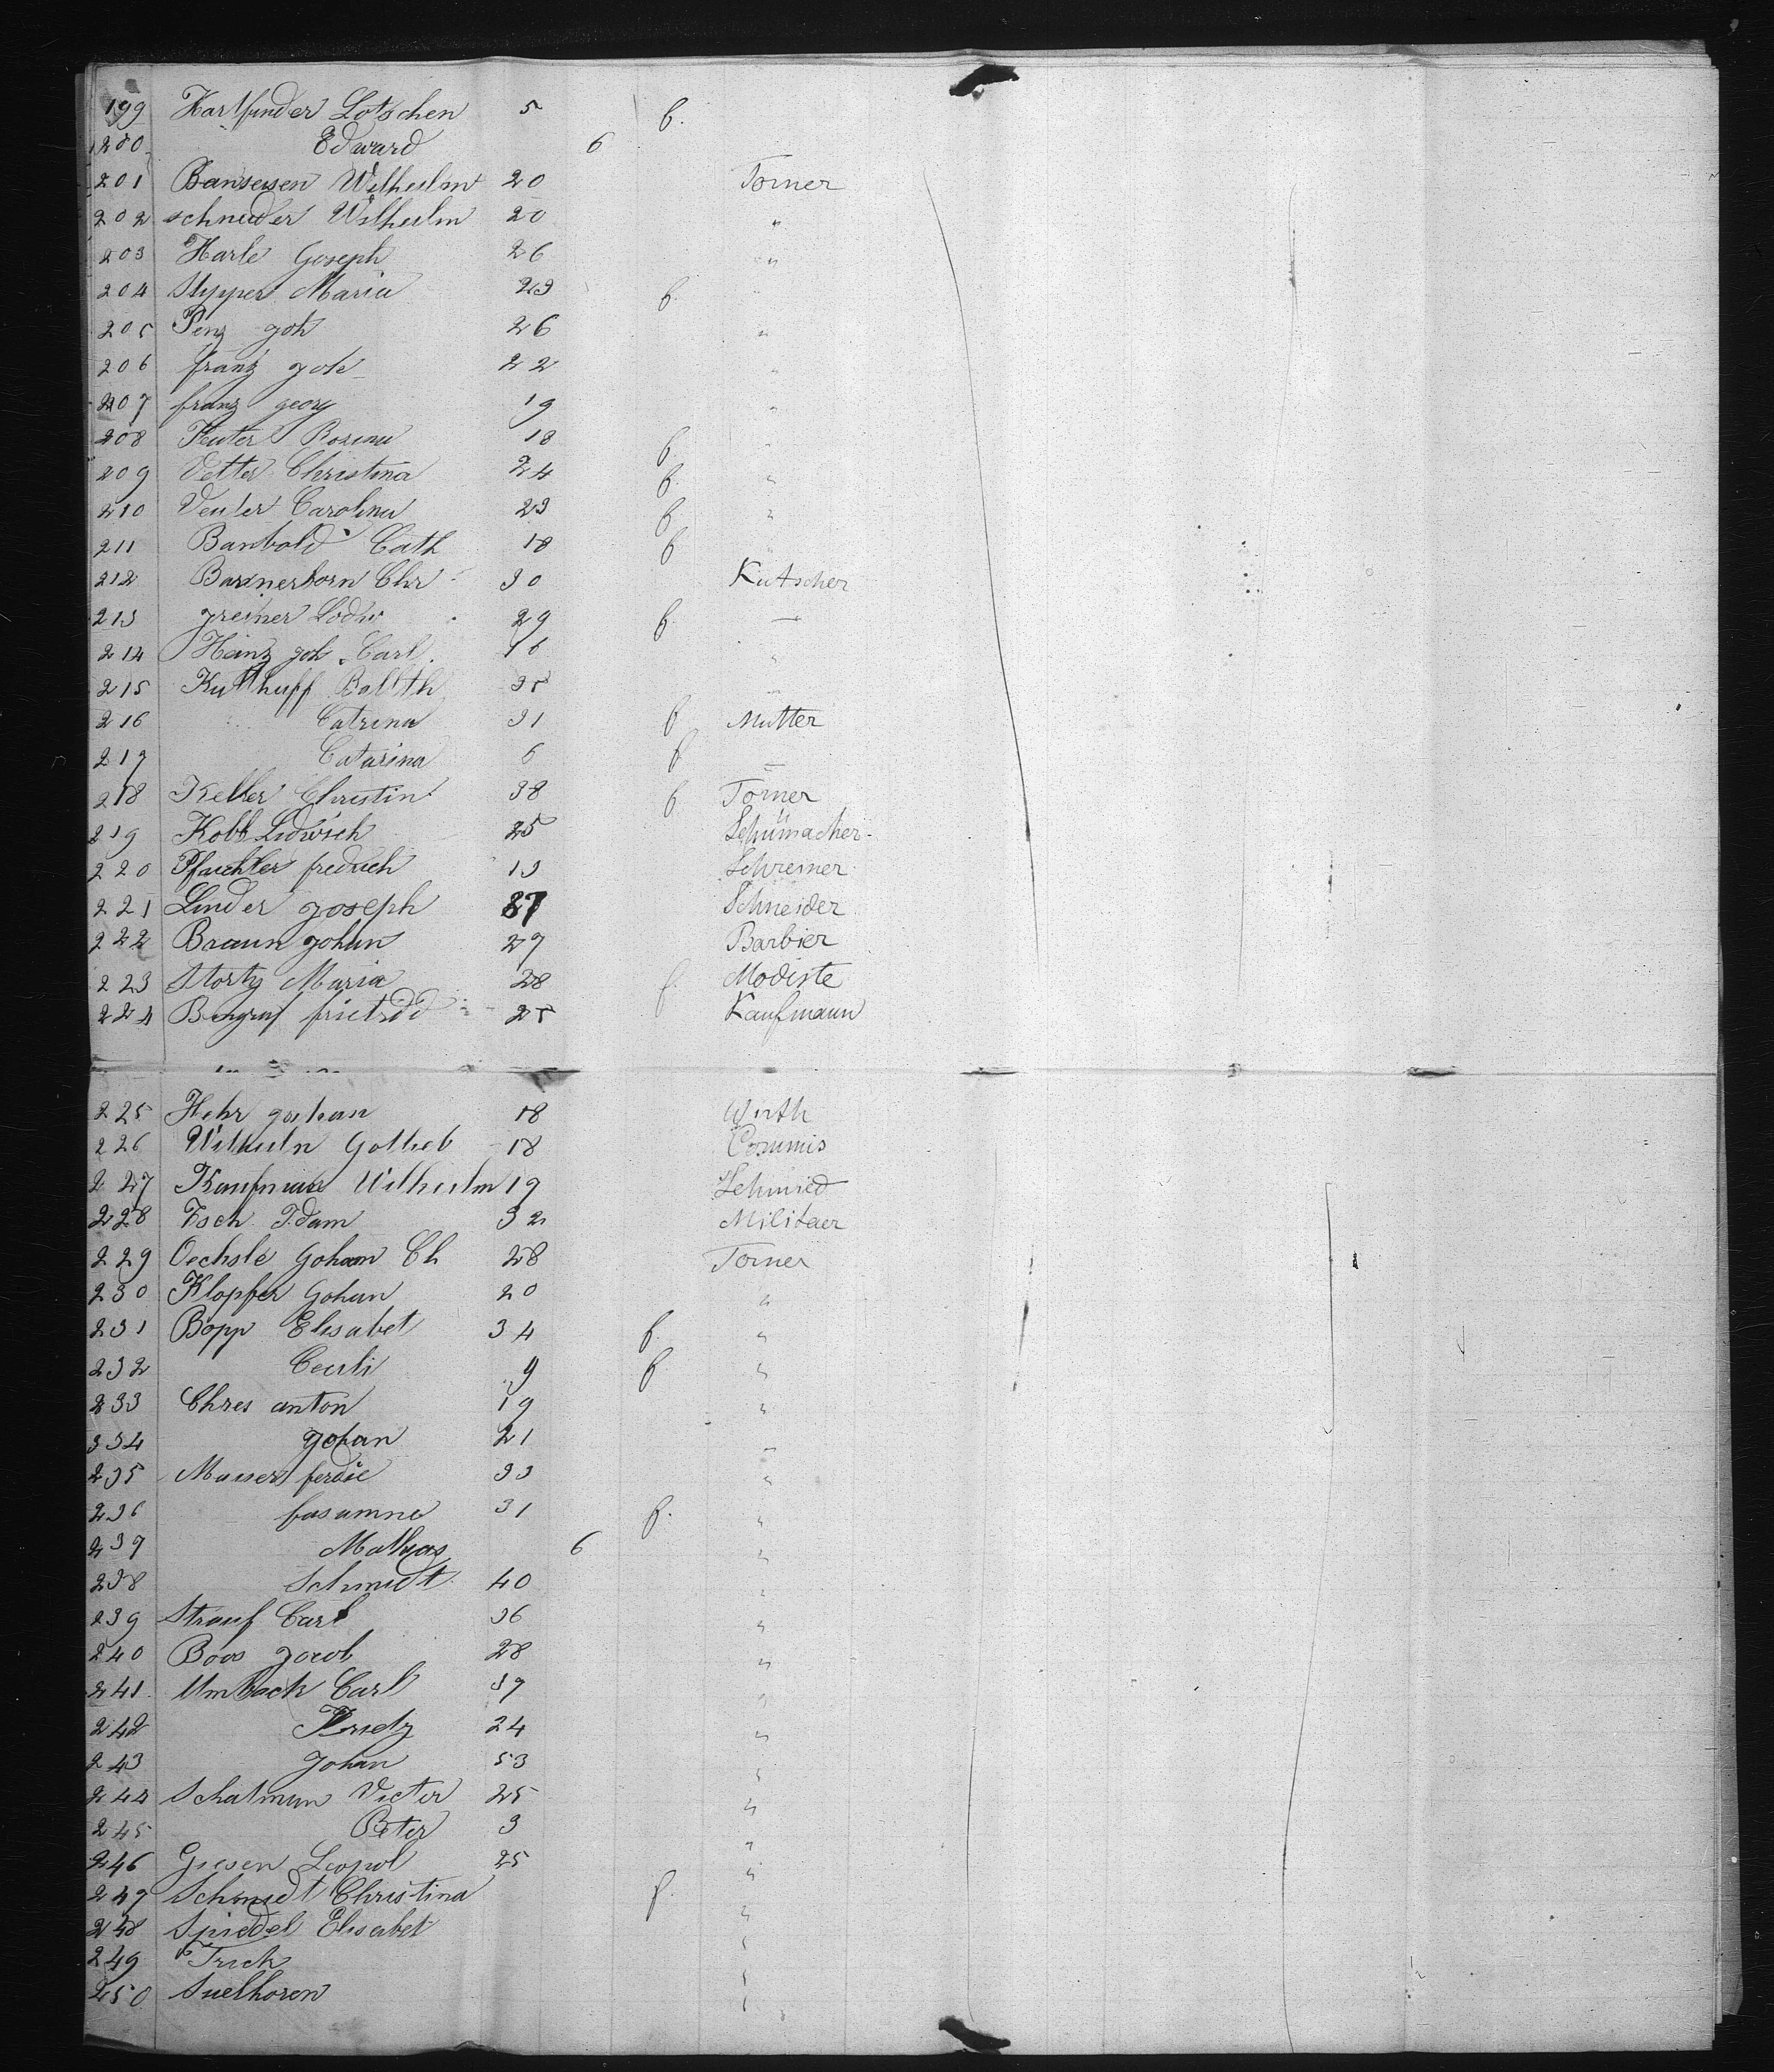 199 Hartfinder Lotschen 5 f.
200 Edward 6
201 Banseisen Wilheilm 20 Torner
202 schneider Wilheilm 20 "
203 Harle Goseph 26 "
204 Stypper Maria 23 f. "
205 Penz joh 26 "
206 franz joh 22 "
207 franz georg 19 "
208 Reuter Rosina 18 f. "
209 Vetter Christina 24 f. "
210 Veuter Carolina 23 f "
211 Banbold Cath 18 f "
212 Barnerhorn Chr 30 Kutscher
213 greiner Lodw 29 f. —
214 Heinz joh Carl 16 "
215 Kutthuff Balth 35 —
216 Catrina 31 f Mutter
217 Catarina 6 f —
218 Keller Christin 38 f. Torner
219 Kobb Ludwich 25 Schümacher
220 Pfaichter fredrich 19 Schreiner
221 Linder joseph 37 Schneider
222 Braun johan 27 Barbier
223 Storty Maria 28 f. Modiste
224 25 Kaufmann
225 Hehr johan 18 Wirth
226 Wilheiln Gotlieb 18 Commis
227 Kaufman Wilheilm 19 Schmied
228 Esch Adam 32 Militaer
229 Oechsle Gohan Ch 28 Torner
230 Klopfer Gohan 20 "
231 Bopp Elisabet 34 f. "
232 9 f "
233 Chres anton 19 "
334 gohan 21 "
235 Mauser ferdie 33 "
236 31 f. "
237 Mathias 6 "
238 Schmidt 40 "
239 Strauf Carl 36 "
240 Boos jacob 28 "
241 Umback Carl 37 "
242 24 "
243 Johan 53 "
244 Schatman Victer 25 "
245 Peter 3 "
246 Giesen Leopol 25 "
247 Schmidt Christina f. "
248 Spiedel Elisabet "
249 Frick "
250 Suelhoren "